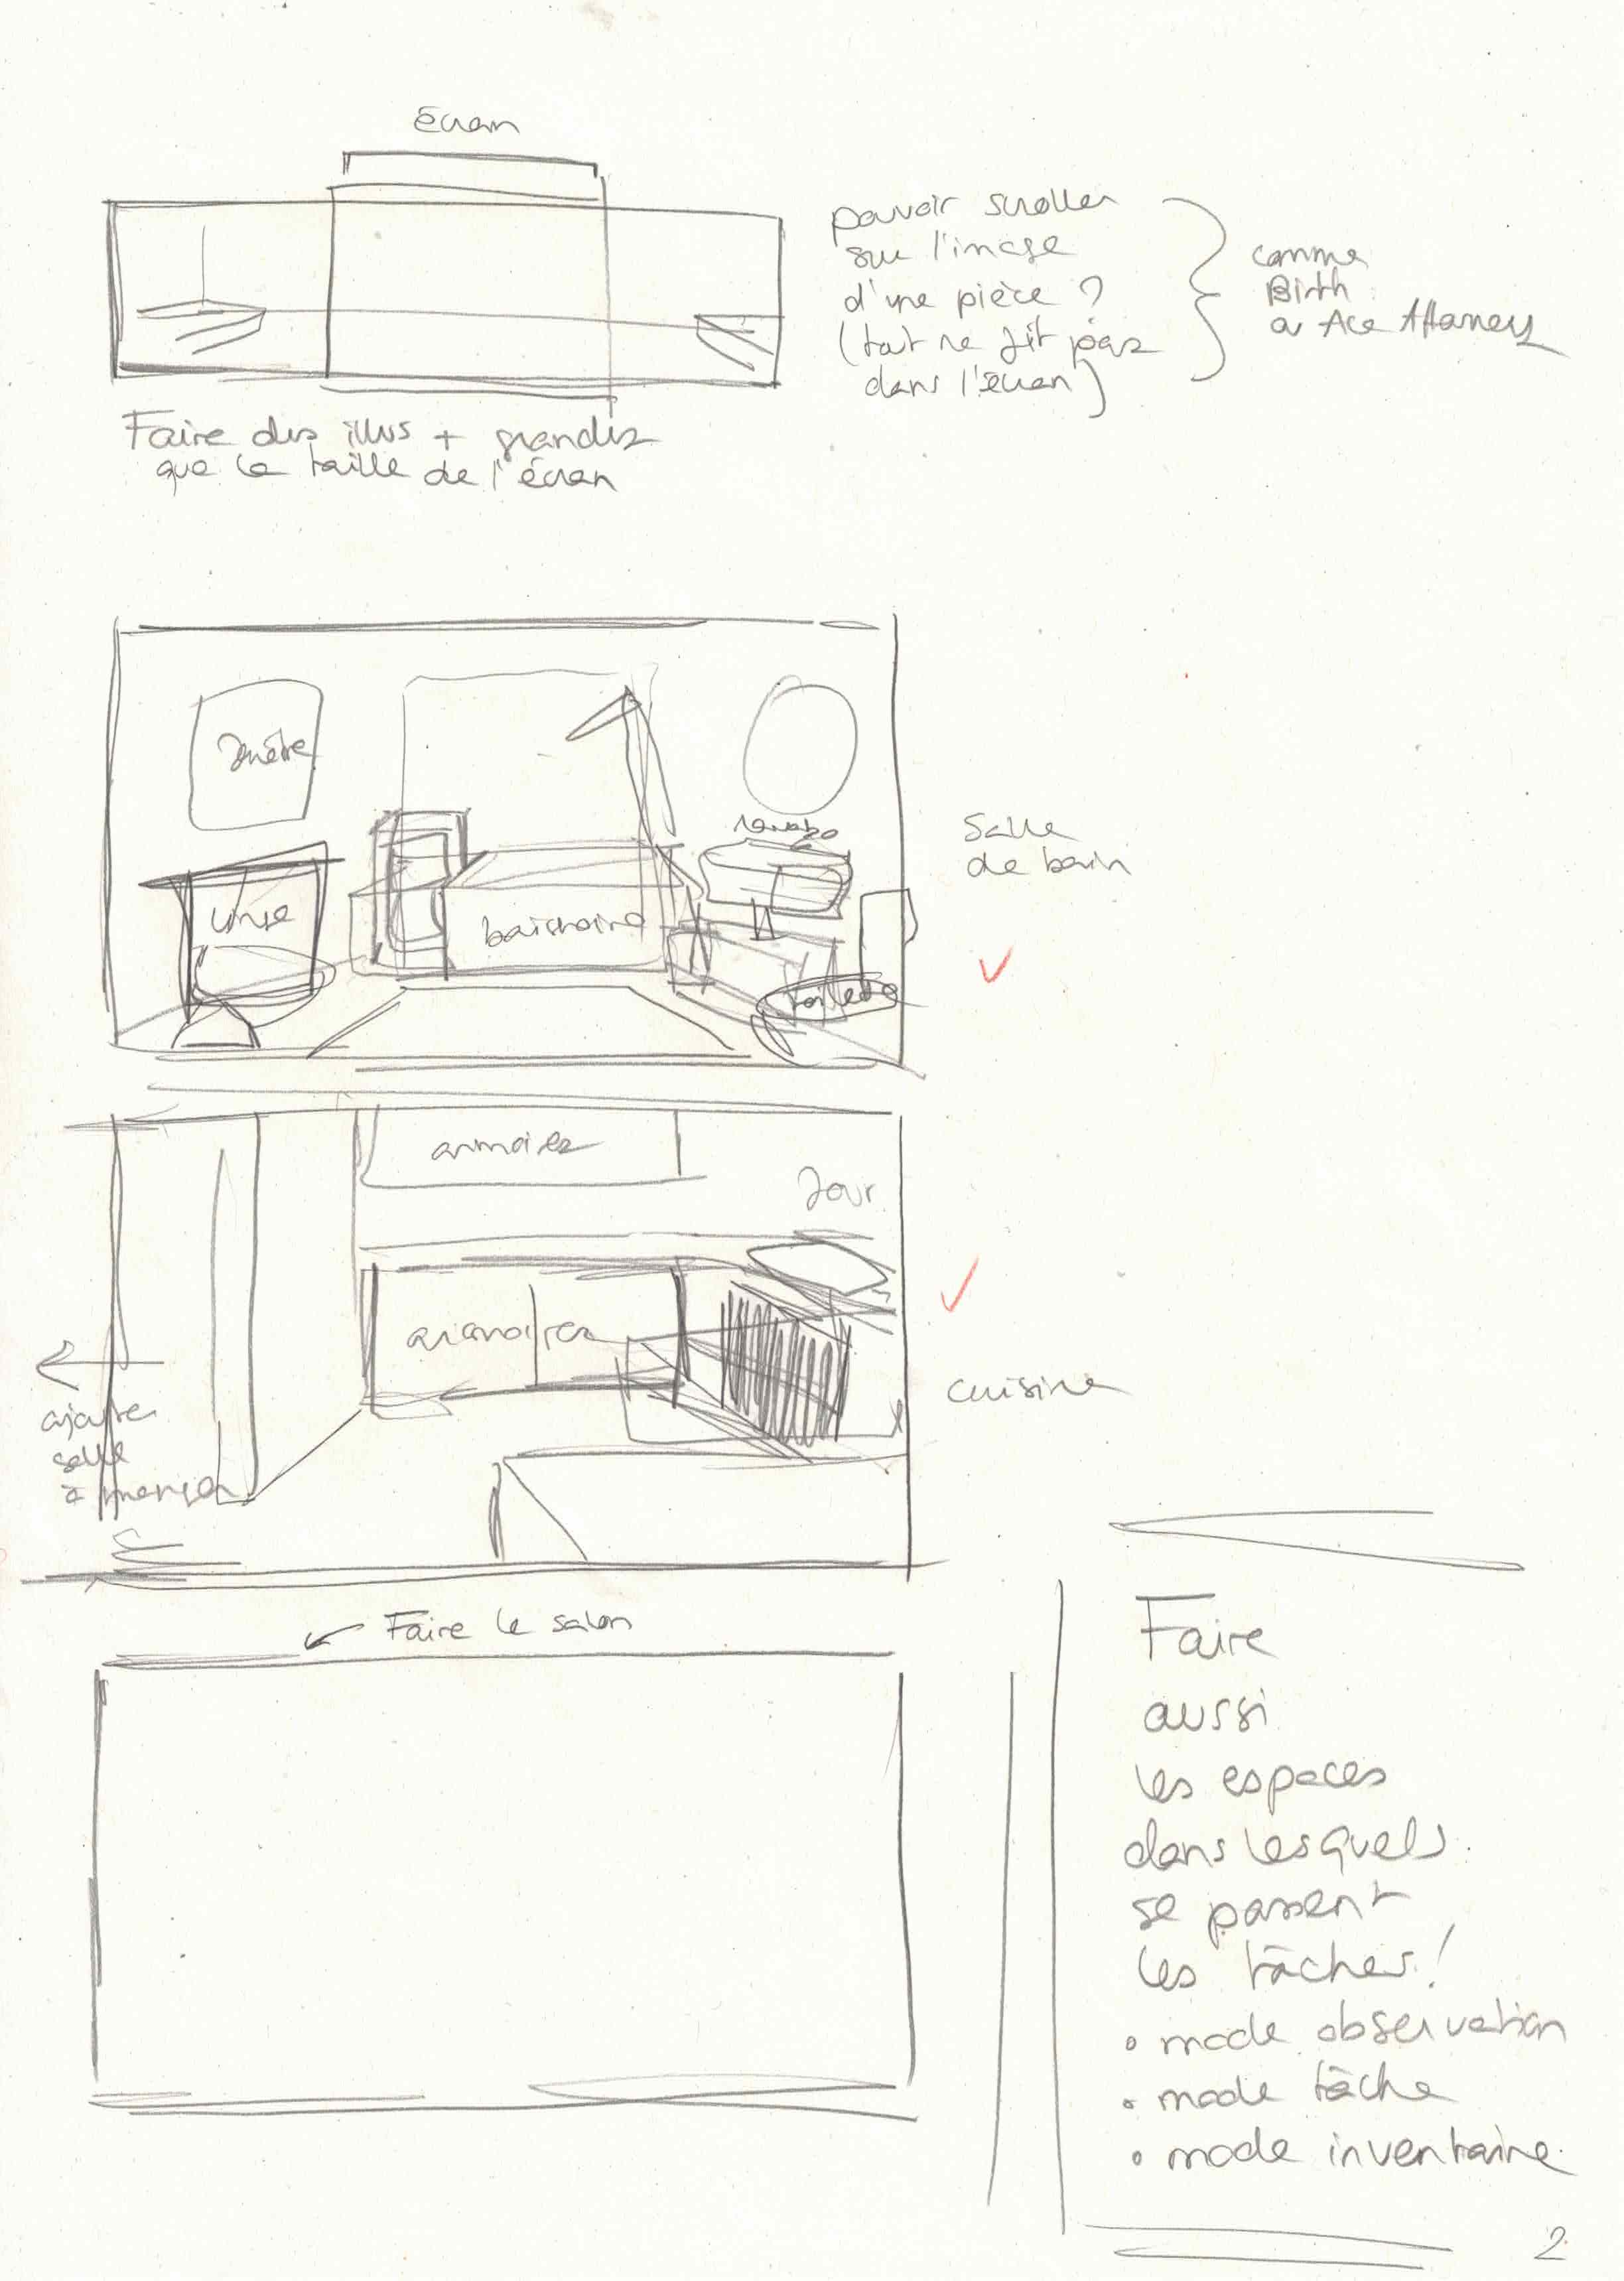 écran
pouvoir scroller
sur l'image
d'une pièce ?
(tout ne fit pas
dans l'écran)
comme
Birth
ou Ace Attorney
Faire des illus + grandes
que la taille de l'écran
fenêtre
lavabo
baignoire
toilette
Salle
de bain
armoires
four
armoires
cuisine
ajouter
salle
à manger
Faire le salon
Faire
aussi
les espaces
dans lesquels
se passent
les tâches !
• mode observation
• mode tâche
• mode inventaire
2